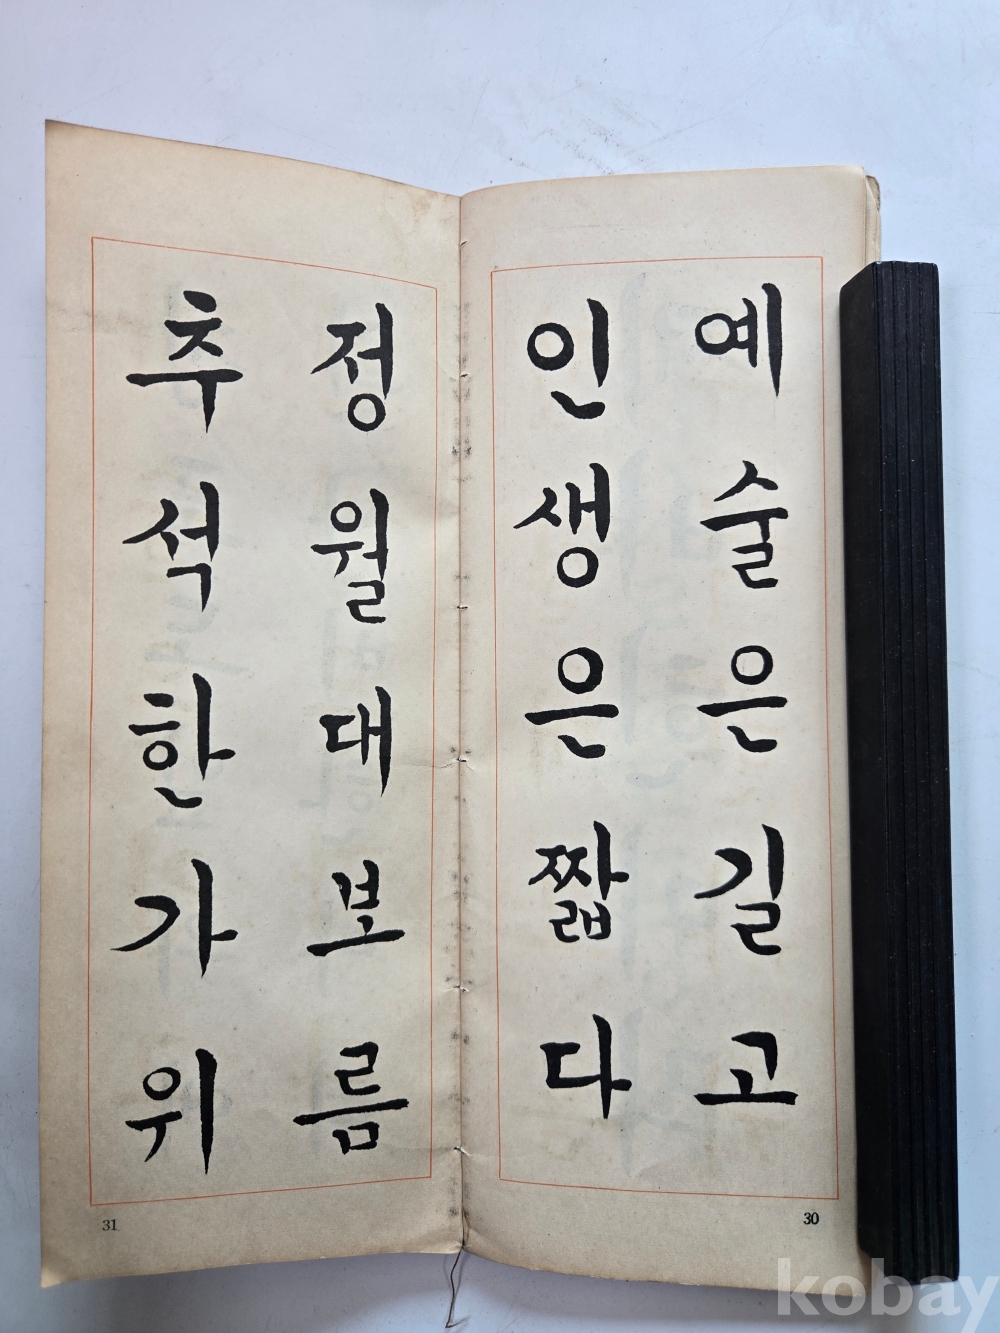 예술은길고
인생은짧다
30
정월대보름
추석한가위
31
kobay